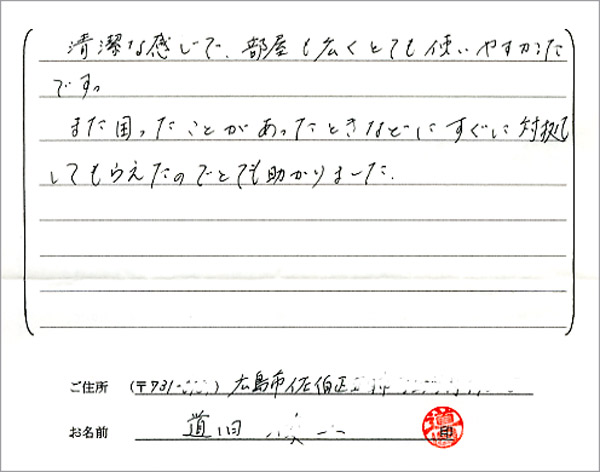 清潔な感じで、部屋も広くとても使いやすかった
です。
また困ったことがあったときなどにすぐに対処
してもらえたのでとても助かりました.
ご住所 (〒731- ) 広島市佐伯区
お名前 道旧
印